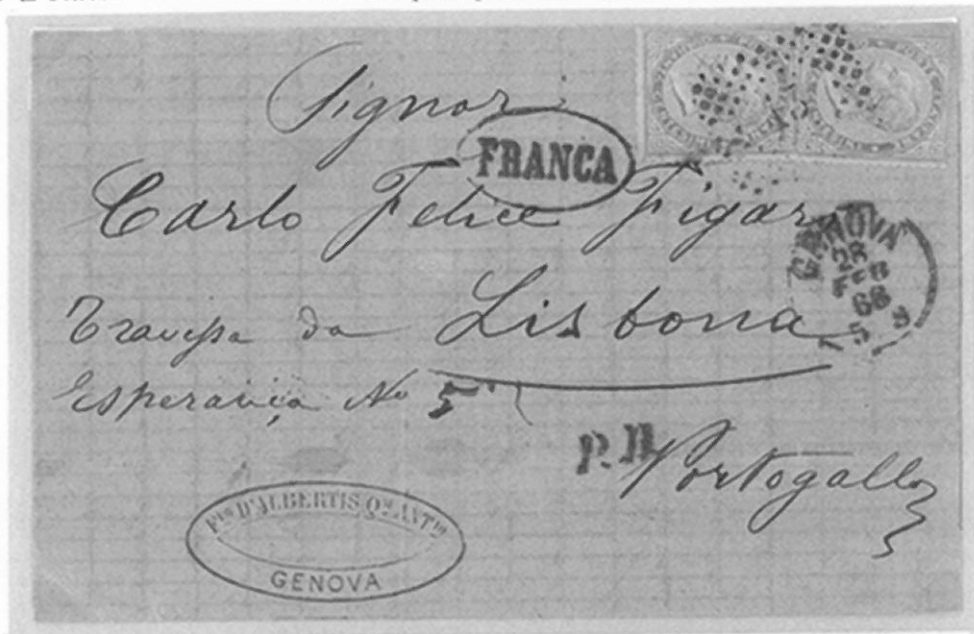 Signor
FRANCA
Carlo Felice Figar
GENOVA
28
FEB
66
5 S
Travessa da Lisbona
Esperança No 5
P.D.
Portogallo
Flli D'ALBERTIS Qm ANTio
GENOVA